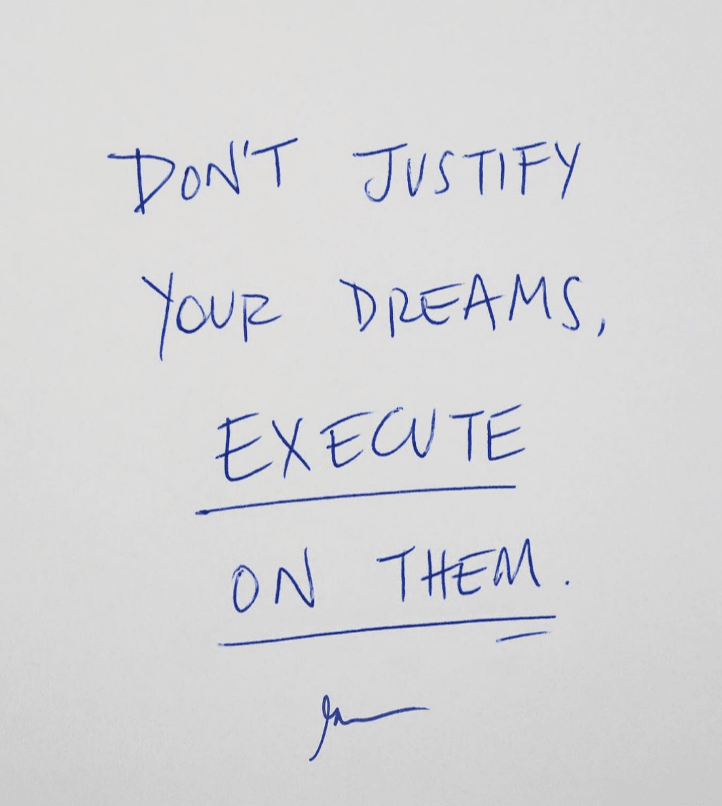 DON'T JUSTIFY
YOUR DREAMS,
EXECUTE
ON THEM.